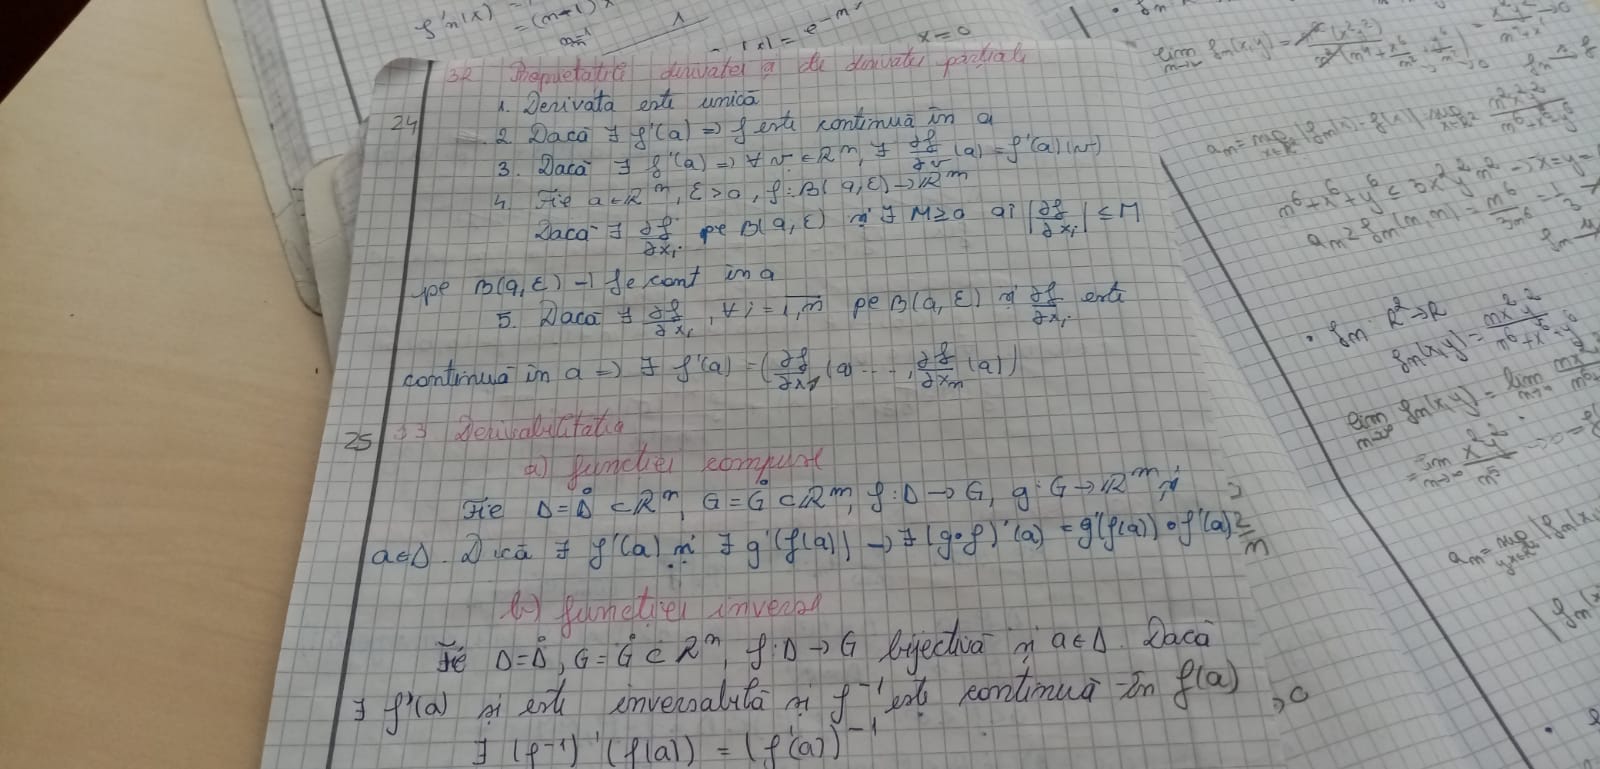 f'n(x) =
= (n+1)
f(x) = e^-n
x=0
32 Proprietatile derivatei a de derivatei partiale
24
1. Derivata este unică
2. Dacă ∃ f'(a) => f este continuă în a
3. Dacă ∃ f'(a) => ∀ v ∈ R^n, ∃ ∂f/∂v (a) = f'(a)(v)
4. Fie a∈R^n, ε>0, f: B(a,ε) → R^m
Dacă ∃ ∂f/∂xi pe B(a,ε) și ∃ M≥0 aî |∂f/∂xi| ≤ M
pe B(a,ε) → f e cont în a
5. Dacă ∃ ∂f/∂xi, ∀ i=1,n pe B(a,ε) și ∂f/∂xi este
continuă în a => ∃ f'(a) = (∂f/∂x1 (a) ..., ∂f/∂xn (a))
25 33 Derivabilitatea
a) funcției compuse
Fie D=D̊ ⊂ R^n, G=G̊ ⊂ R^m, f: D → G, g: G → R^m și
a∈D. Dacă ∃ f'(a) și ∃ g'(f(a)) → ∃ (g∘f)'(a) = g'(f(a)) ∘ f'(a)
b) funcției inverse
Fie D=D̊, G=G̊ ⊂ R^n, f: D → G bijectivă și a∈D. Dacă
∃ f'(a) și este inversabilă și f^-1 este continuă în f(a)
∃ (f^-1)'(f(a)) = (f'(a))^-1
m^6+x^6+y^6 ≤ 3x^2y^2m^2 → x=y=
am ≥ fm(m,m) = m^6/3m^6 = 1/3
fm: R^2→R
fm(x,y) = mx^2y^2/m^6+x^6+y^6
lim fm(x,y) = lim